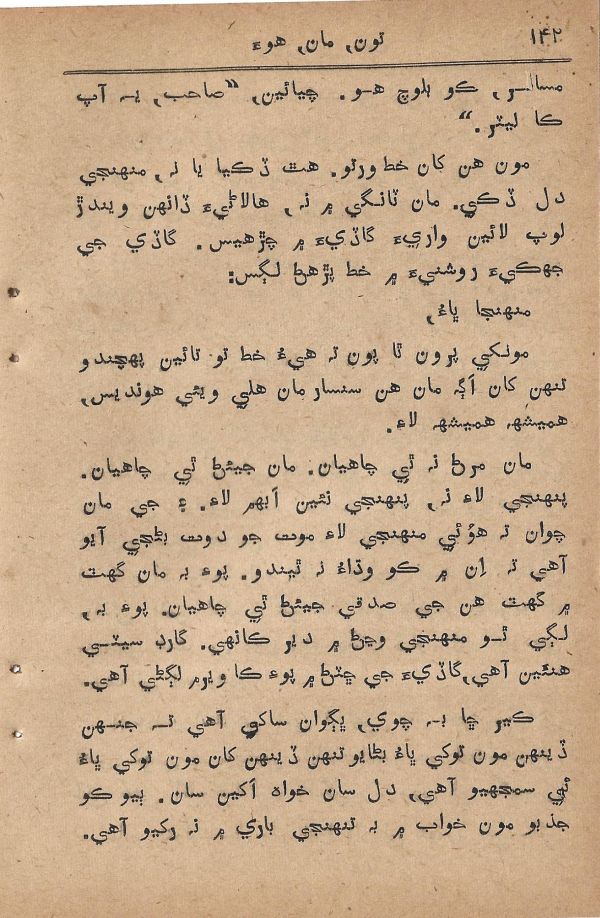 ۱۴۲
تون, مان, هوءَ
مسافر, ڪو بلوچ هو. چيائين, “صاحب, يہ آپ
ڪا ليٽر.“
مون هن کان خط ورتو. هٿ ڏڪيا يا نہ, منهنجي
دل ڏڪي. مان ٽانگي ۾ نہ, هالاڻيءَ ڏانهن ويندڙ
لوپ لائين واريءَ گاڏيءَ ۾ چڙهيس. گاڏي جي
جهڪيءَ روشنيءَ ۾ خط پڙهڻ لڳس:
منهنجا ڀاءُ,
مونکي پرون ٿا پون تہ هيءُ خط تو تائين پهچندو
تنهن کان اڳہ مان هن سنسار مان هلي ويئي هونديس,
هميشہ هميشہ لاءِ.
مان مرڻ نہ ٿي چاهيان. مان جيئڻ ٿي چاهيان.
پنهنجي لاءِ نہ, پنهنجي نئين اَٻهم لاءِ. ۽ جي مان
چوان تہ هوُئي منهنجي لاءِ موت جو دوت بڻجي آيو
آهي تہ اِن ۾ ڪو وڌاءُ نہ ٿيندو. پوءِ بہ مان گهٽ
۾ گهٽ هن جي صدقي جيئڻ ٿي چاهيان. پوءِ بہ,
لڳي ٿو منهنجي وڃڻ ۾ دير ڪانهي. گارڊ سيٽي
هنئين آهي, گاڏيءَ جي ڇٽڻ ۾ پوءِ ڪا ويرم لڳڻي آهي.
ڪير ڇا بہ چوي, ڀڳوان ساکي آهي تہ جنهن
ڏينهن مون توکي ڀاءُ بڻايو تنهن ڏينهن کان مون توکي ڀاءُ
ئي سمجهيو آهي, دل سان خواه اَکين سان. ٻيو ڪو
جذبو مون خواب ۾ بہ تنهنجي باري ۾ نہ رکيو آهي.